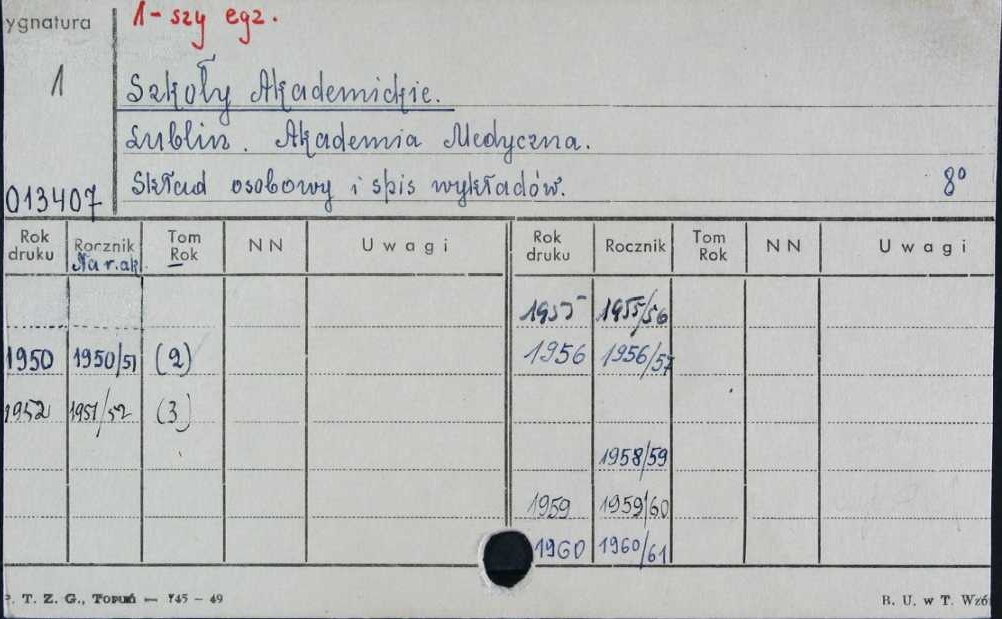 ygnatura
1-szy egz.
1
Szkoły Akademickie.
Lublin. Akademia Medyczna.
Skład osobowy i spis wykładów. 8°
013407
Rok druku Rocznik Na r. ak. Tom Rok NN Uwagi Rok druku Rocznik Tom Rok NN Uwagi
1955 1955/56
1950 1950/51 (2) 1956 1956/57
1952 1951/52 (3)
1958/59
1959 1959/60
1960 1960/61
P. T. Z. G., Toruń — 745 — 49 B. U. w T. Wzó